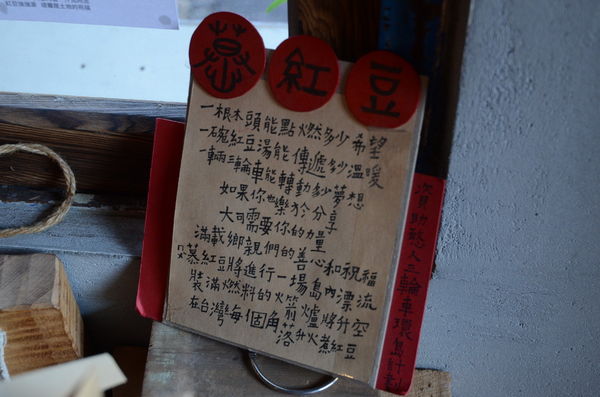 募紅豆
一根木頭能點燃多少希望
一碗紅豆湯能傳遞多少溫暖
一輛三輪車能轉動多少夢想
如果你也樂於分享
大可需要你的力量
滿載鄉親們的善心和祝福
募紅豆將進行一場島內漂流
裝滿燃料的火箭爐將升空
在台灣每個角落升火煮紅豆
資助憨人三輪車環島計劃